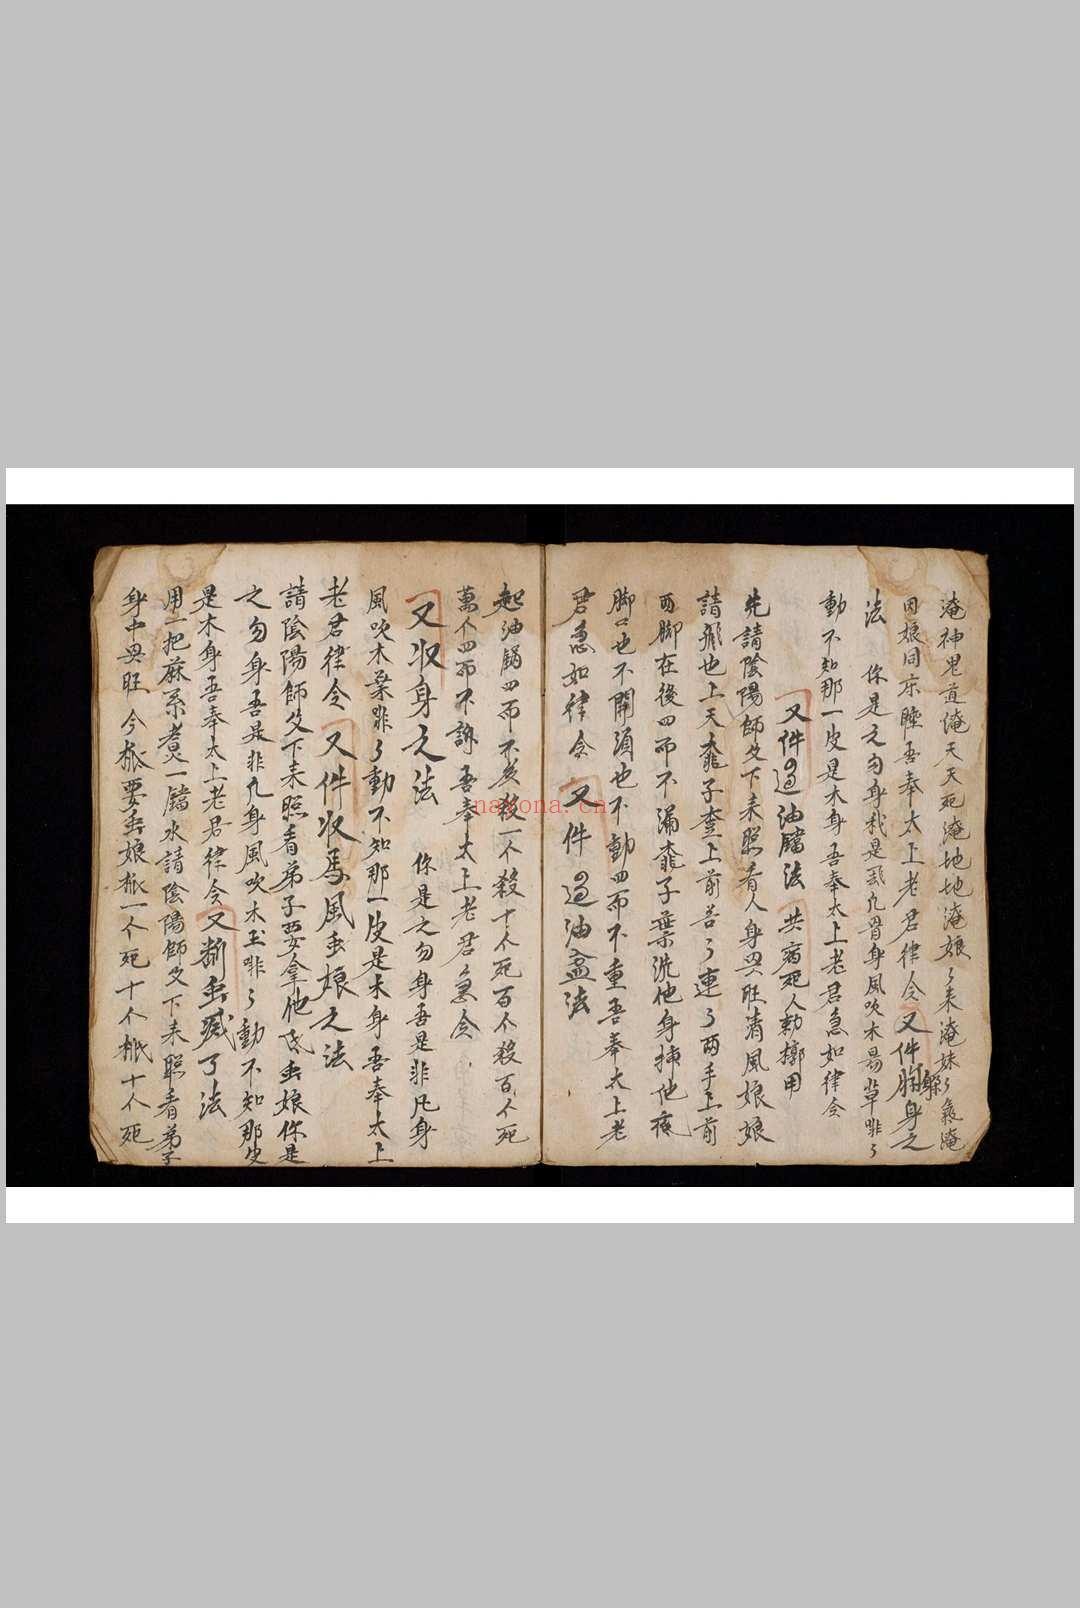 淹神鬼道淹天天死淹地地淹娘〻来淹妹〻氣淹
同娘同床睡吾奉太上老君律令又件解身之
法 你是之勿身我是凡身風吹木易草啡〻
動不知那一皮是木身吾奉太上老君急如律令
又件過油鐺法 共病死人勑用
先請陰陽師父下来照看人身四旺清風娘娘
請也上天竜子上前苦〻連〻兩手上前
西脚在後四而不漏竜子葉洗他身他死
脚口也不開須也不動四而不重吾奉太上老
君急如律令 又件過油法
起油鍋四而不殺一个殺十个死百个殺百个死
萬个四而不 吾奉太上老君急令
又收身之法 你是之勿身吾是非凡身
風吹木葉啡〻動不知那一皮是木身吾奉太上
老君律令 又件收馬風虫娘之法
請陰陽師父下来照看弟子要拿他虫娘你是
之勿身吾是非凡身風吹木啡〻動不知那皮
是木身吾奉太上老君律令又斷虫滅了法
用一把麻系煮一鐺水請陰陽師父下来照看弟子
身中四旺 今要虫娘一个死十个十个死
nayona.cn